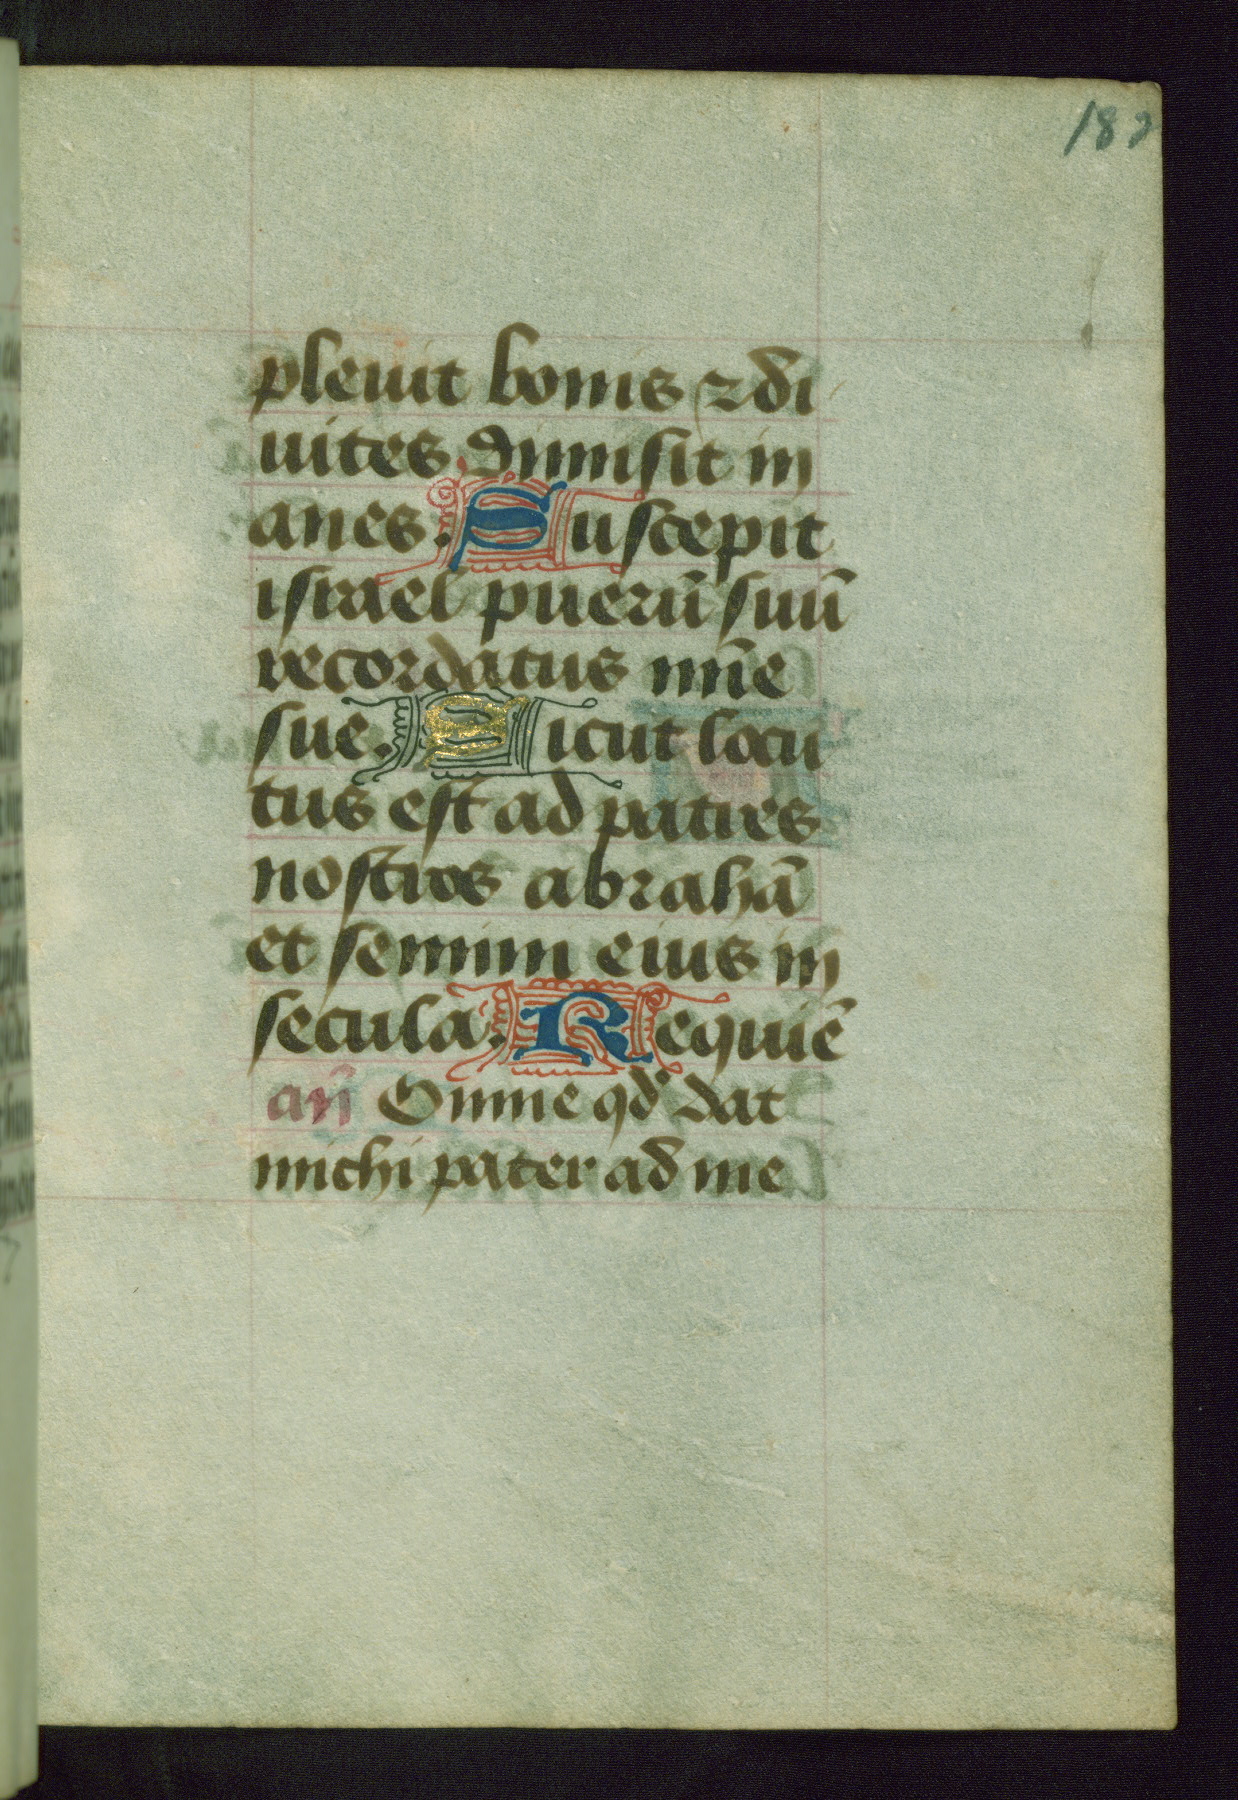 182
pleuit bonis ⁊ di
uites dimisit in
anes. Suscepit
israel puerū suū
recordatus mīe
sue. Sicut locu
tus est ad patres
nostros abrahā
et semini eius in
secula. Requiē
an̄ Omne qd̄ dat
michi pater ad me